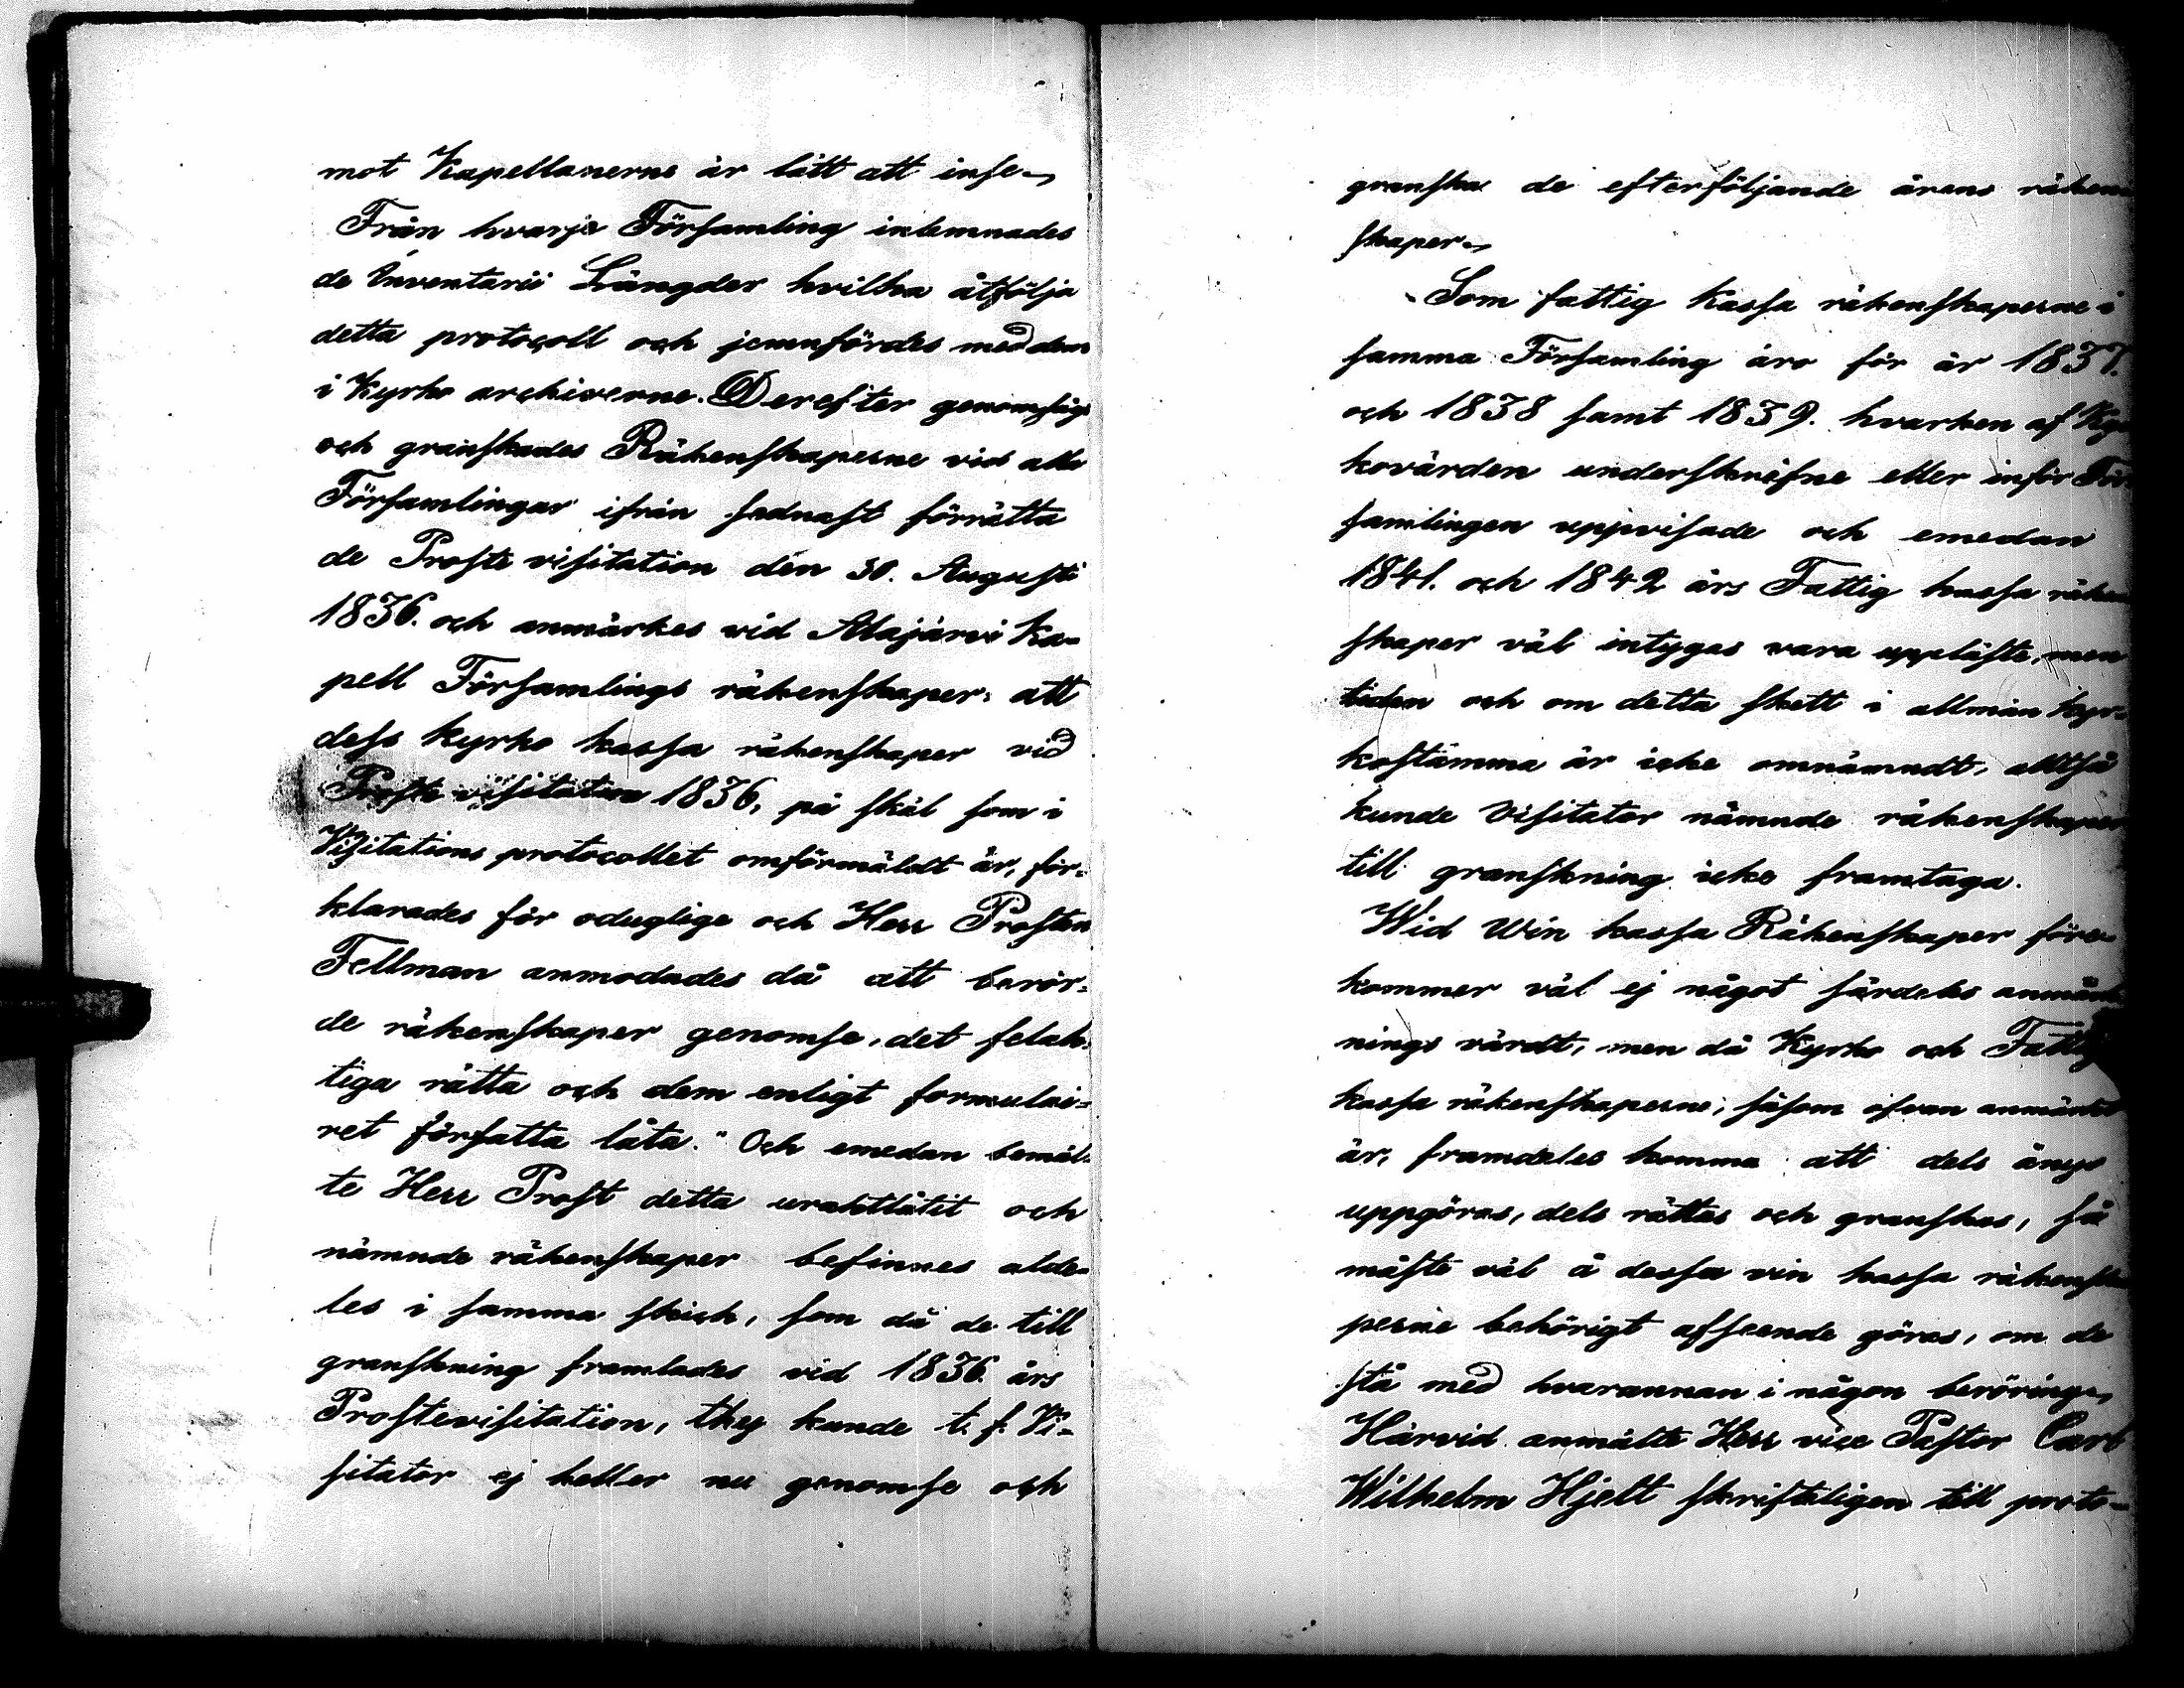 mot Kapellanerne är lätt att inse.
Från hvarje Församling inlemnades
de Inventarii Längder hvilka åtfölja
detta protocoll och jemnfördes med dem
i Kyrko archiverne. Derefter genomsågs
och granskades Räkenskaperne vid alla
Församlingar ifrån sednast förrätta
de Proste visitation den 30. Augusti
1836. och anmärkes vid Alajärvi Ka-
pell Församlings räkenskaper: att
dess kyrko kassa räkenskaper vid
Proste visitation 1836, på skäl som i
Visitations protocollet omförmäldt är, för-
klarades för odugliga och Herr Prosten
Fellman anmodades då att berör-
de räkenskaper genomse, det felak-
tiga rätta och dem enligt formulai-
ret författa låta." Och emedan bemäl-
te Herr Prost detta uraktlåtit och
nämnde räkenskaper befinnes alde-
les i samma skick, som då de till
granskning framlades vid 1836 års
Prostevisitation, they kunde t. f. Vi-
sitator ej heller nu genomse och
granska de efterföljande årens räken
skaper.
Som fattig kassa räkenskaperne i
samma Församling äro för år 1837.
och 1838 samt 1839. hvarken af Kyr
kovärden underskrifne eller inför För
samlingen uppvisade och emedan
1841. och 1842 års Fattig kassa räken
skaper väl intygas vara uppläste, men
tiden och om detta skett i allmän kyr-
kostämma är icke omnämndt, alltså
kunde Visitator nämnde räkenskaper
till granskning icke framtaga.
Wid Win kassa Räkenskaper före-
kommer väl ej något särdeles anmärk
nings värdt, men då Kyrko och Fattig
kassa räkenskaperne, såsom ofvan anmärkt
är, framdeles komma att dels ånyo
uppgöras, dels rättas och granskas, så
måste väl å dessa vin kassa räkenska
perne behörigt afseende göras, om de
stå med hvarannan i någon beröring.
Härvid anmälte Herr vice Pastor Carl
Wilhelm Hjelt skrifteligen till proto-